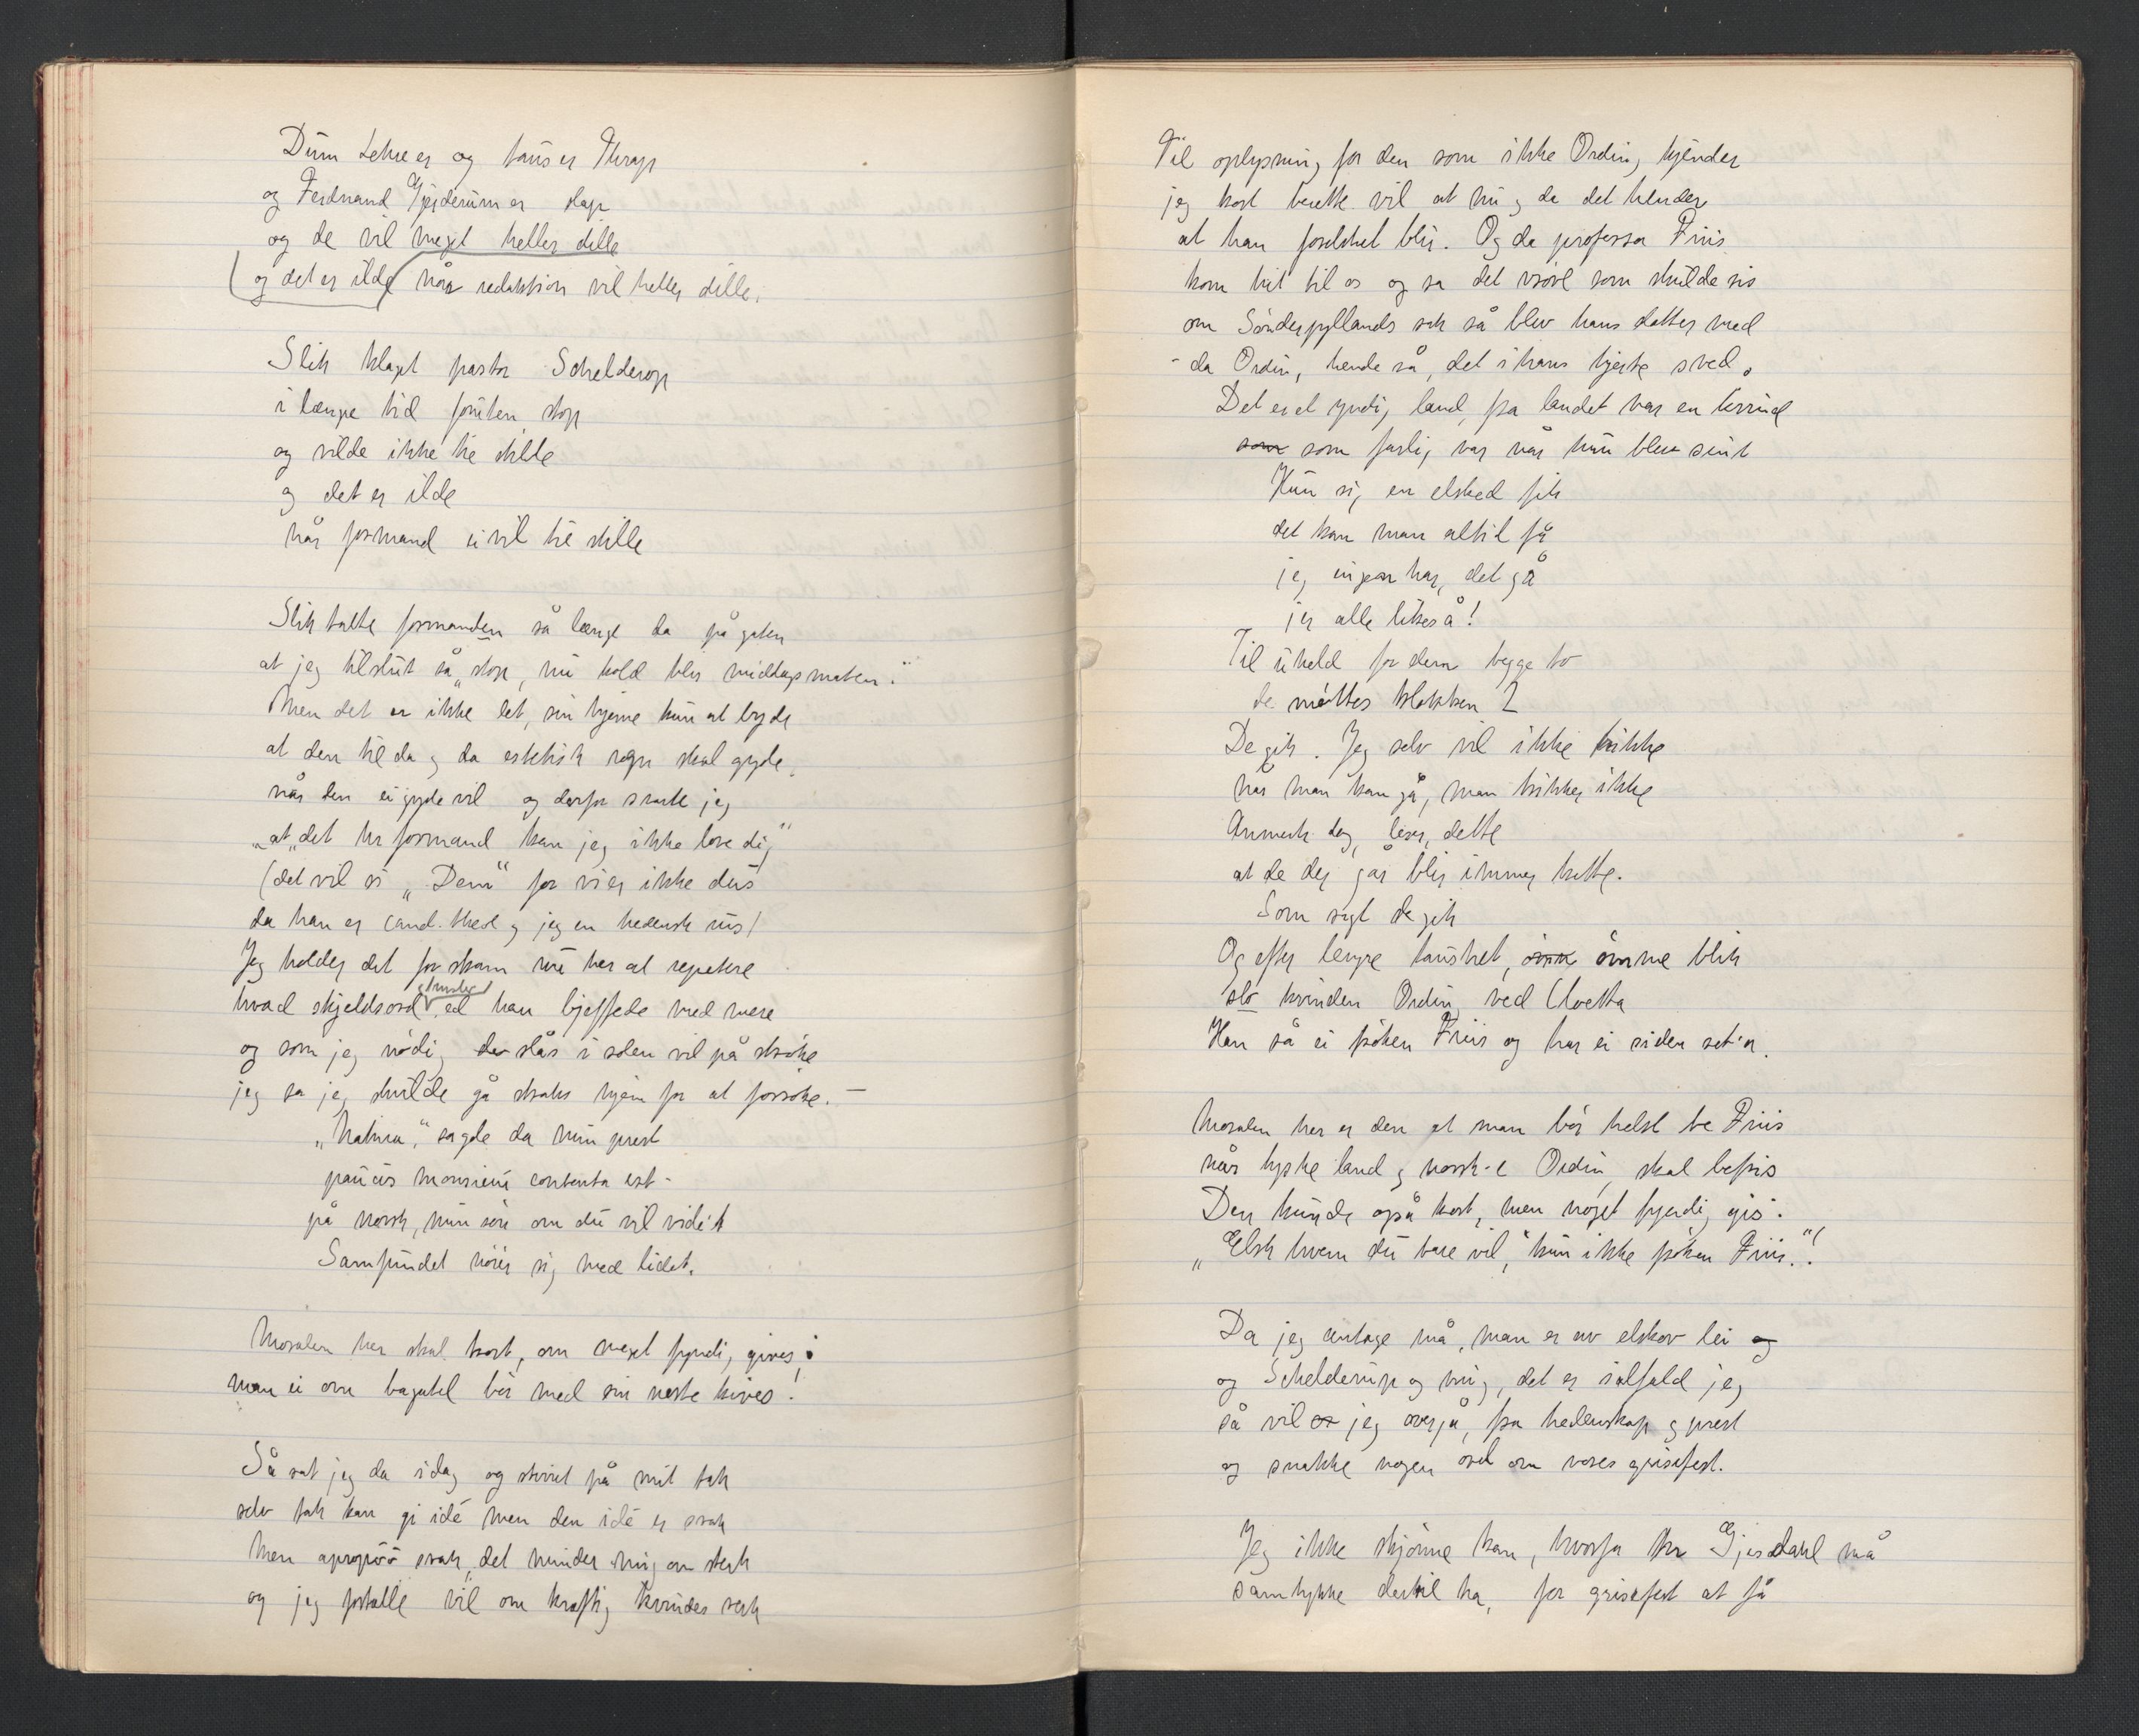 Dum Lehre er og taus er Thrap
og Ferdnand Gjerdrum er slap
og de vil meget heller dille
(og det er ilde når redaktion vil heller dille.
Slik klaget pastor Schelderup
i længre tid foruten stop
og vilde ikke tie stille
og det er ilde
når formand ei vil tie stille
Slik talte formanden så længe da på gaten
at jeg tilslut sa „stop, nu kold blir middagsmaten."
Men det er ikke let, sin hjerne kun at byde
at den til da og da estetisk regn skal gyde.
når den ei gyde vil og derfor svarte jeg
„at „det hr formand kan jeg ikke love dig"
(det vil si „Dem" for vi er ikke dus
da han er cand. theol og jeg en hedensk rus)
Jeg holder det for skam nu her at repetere
hvad skjeldsord, ed han bjeffede med mere
og som jeg nødig da slås i solen vil på strøke
jeg sa jeg skulde gå straks hjem for at forsøke. —
„Natura," sagde da min prest
paucis contenta est -
på norsk, min søn om du vil vide't
Samfundet nøier sig med lidet.
Moralen her skal kort, om meget fyndig gives:
man ei om bagatel bør med sin neste kives!
Så sat jeg da idag og stirret på mit tak
selv tak kan gi idé men den idé er svak
Men apropòs svak, det minder mig om sterk
og jeg fortælle vil om kraftig kvindes verk
Til oplysning for den som ikke Ording kjender
jeg kort berette vil at nu og da det hender
at han forelsket blir. Og da professor Friis
kom hit til os og sa det vrøvl som skulde sis
om Sønderjyllands sak så blev hans datter med
- da Ording hende så, det i hans hjerte sved.
Det er et yndig land, fra landet var en kvind
som som farlig var når hun blev sint
Hun sig en elsked fik
det kan man altid få
jeg ingen har, det gå
jer alle likeså!
Til uheld for dem begge to
de møttes klokken 2
De gik. Jeg selv vil ikke trikke
når man kan gå, man trikker ikke
Anmerk deg, leser, dette
at de der går blir immer trette.
Som sagt de gik
Og efter længre taushet, ømme blik
slo kvinden Ording ved Uvetta
Han så ei frøken Friis og har ei siden set'a.
Moralen her er den at man bør helst be Friis
når tyske land og norsk-e Ording skal befris
Den kunde også kort, men noget fyndig gis:
„Elsk hvem du bare vil, kun ikke frøken Friis."!
Da jeg antage må, man er av elskov lei og
og Schelderup og mig, det er ialfald jeg
så vil jeg overgå, fra hedenskap og prest
og snakke nogen ord om vores grisefest.
Jeg ikke skjønne kan, hvorfor hr Gjersdahl må
samtykke dertil ha, for grisefest at få